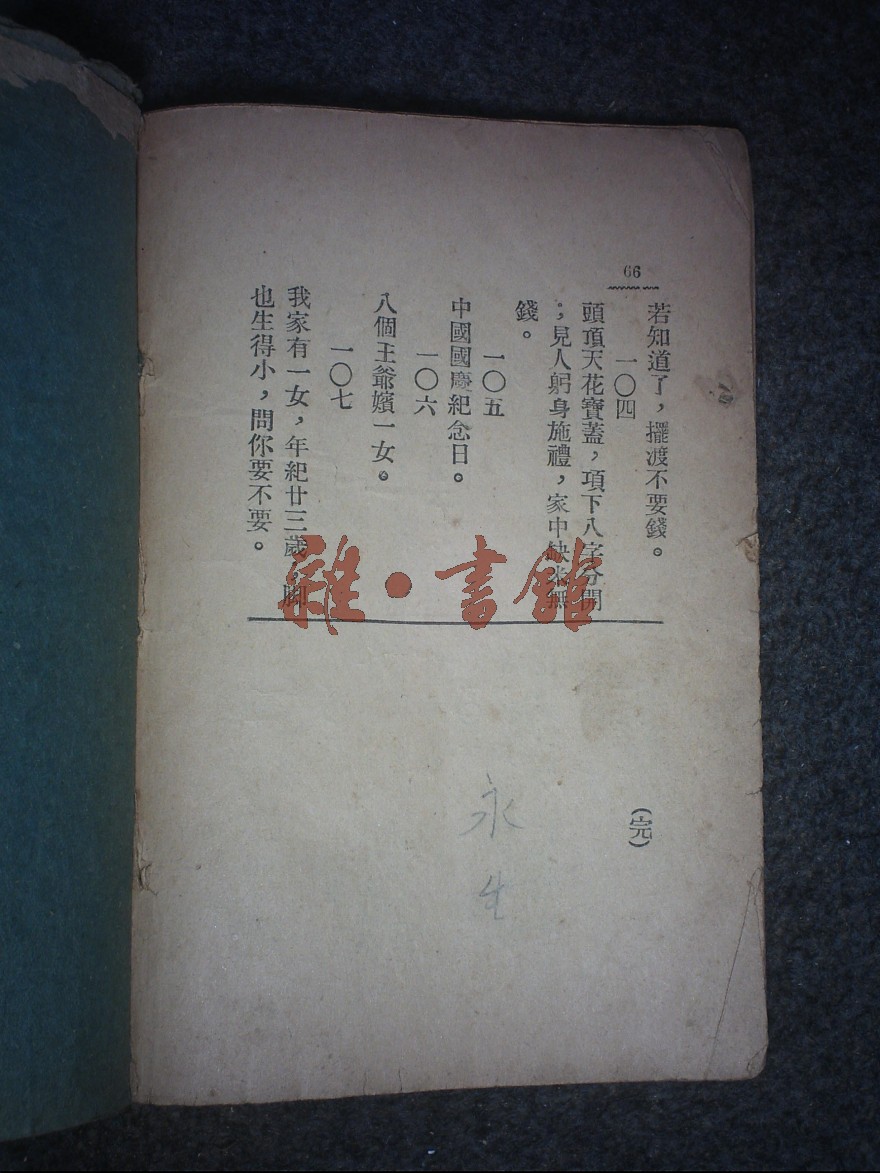 66
若知道了，擺渡不要錢。
一〇四
頭頂天花寶蓋，項下八字分開
，見人躬身施禮，家中缺米無
錢。
一〇五
中國國慶紀念日。
一〇六
八個王爺嬪一女。
一〇七
我家有一女，年紀廿三歲，脚
也生得小，問你要不要。
（完）
永生
雜·書館